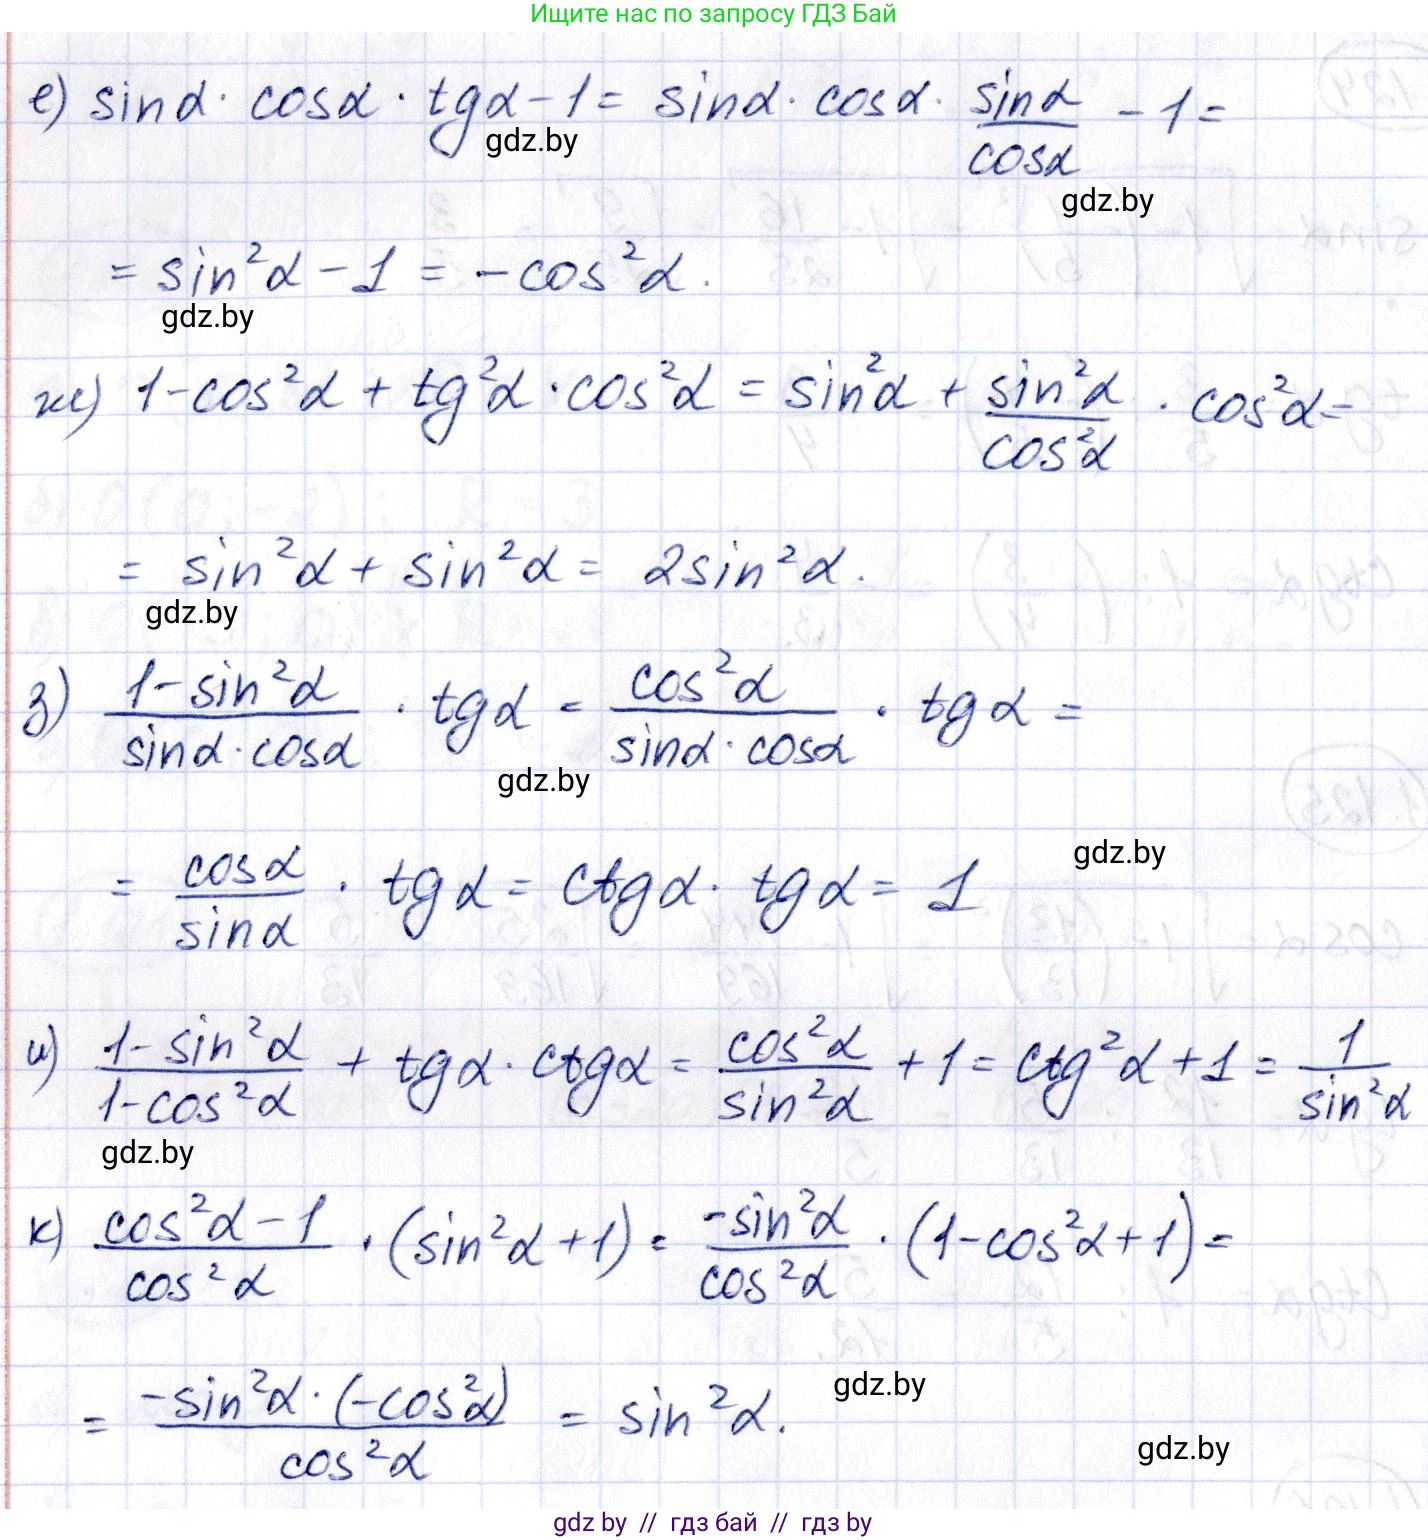 Ищите нас по запросу ГДЗ Бай
е) sinα · cosα · tgα - 1 = sinα · cosα · sinα/cosα - 1 =
gdz.by
gdz.by
= sin²α - 1 = -cos²α.
gdz.by
ж) 1 - cos²α + tg²α · cos²α = sin²α + sin²α/cos²α · cos²α =
= sin²α + sin²α = 2sin²α.
gdz.by
з) (1 - sin²α)/(sinα · cosα) · tgα = cos²α/(sinα · cosα) · tgα =
gdz.by
gdz.by
= cosα/sinα · tgα = ctgα · tgα = 1
и) (1 - sin²α)/(1 - cos²α) + tgα · ctgα = cos²α/sin²α + 1 = ctg²α + 1 = 1/sin²α
gdz.by
к) (cos²α - 1)/cos²α · (sin²α + 1) = -sin²α/cos²α · (1 - cos²α + 1) =
= -sin²α · (-cos²α)/cos²α = sin²α.
gdz.by
gdz.by
gdz by // гдз бай // гдз by